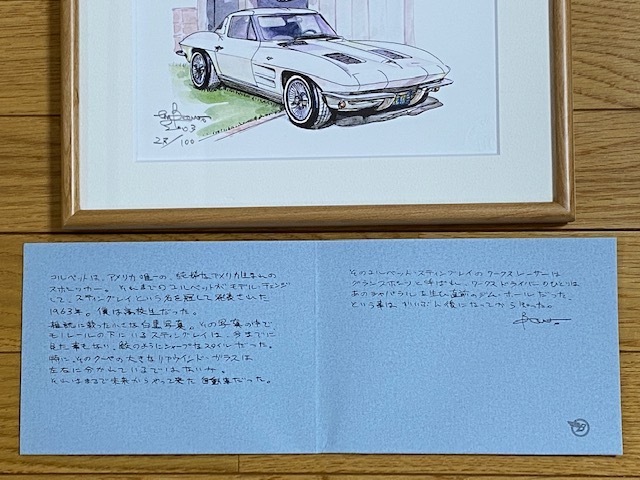 Bow.
2003
28/100
コルベットは、アメリカ唯一の、純粋なアメリカ生まれの
スポーツカー。それまでのコルベットがモデル・チェンジ
して、スティングレイという名を冠して発表された
1963年。僕は高校生だった。
雑誌に載った小さな白黒写真。その写真の中で
モノレールの下にいるスティングレイは、今までに
見た事もない、鮫のようにシャープなスタイルだった。
特に、そのクーペの大きなリアウインド・グラスは
左右に分かれているではないか。
それはまるで未来からやって来た自動車だった。
そのコルベット・スティングレイのワークスレーサーは
グランスポーツと呼ばれ、ワークスドライバーのひとりは
あのチャパラルを生む直前のジム・ホールだった、
という事はかなり後になってから知った。
Bow.